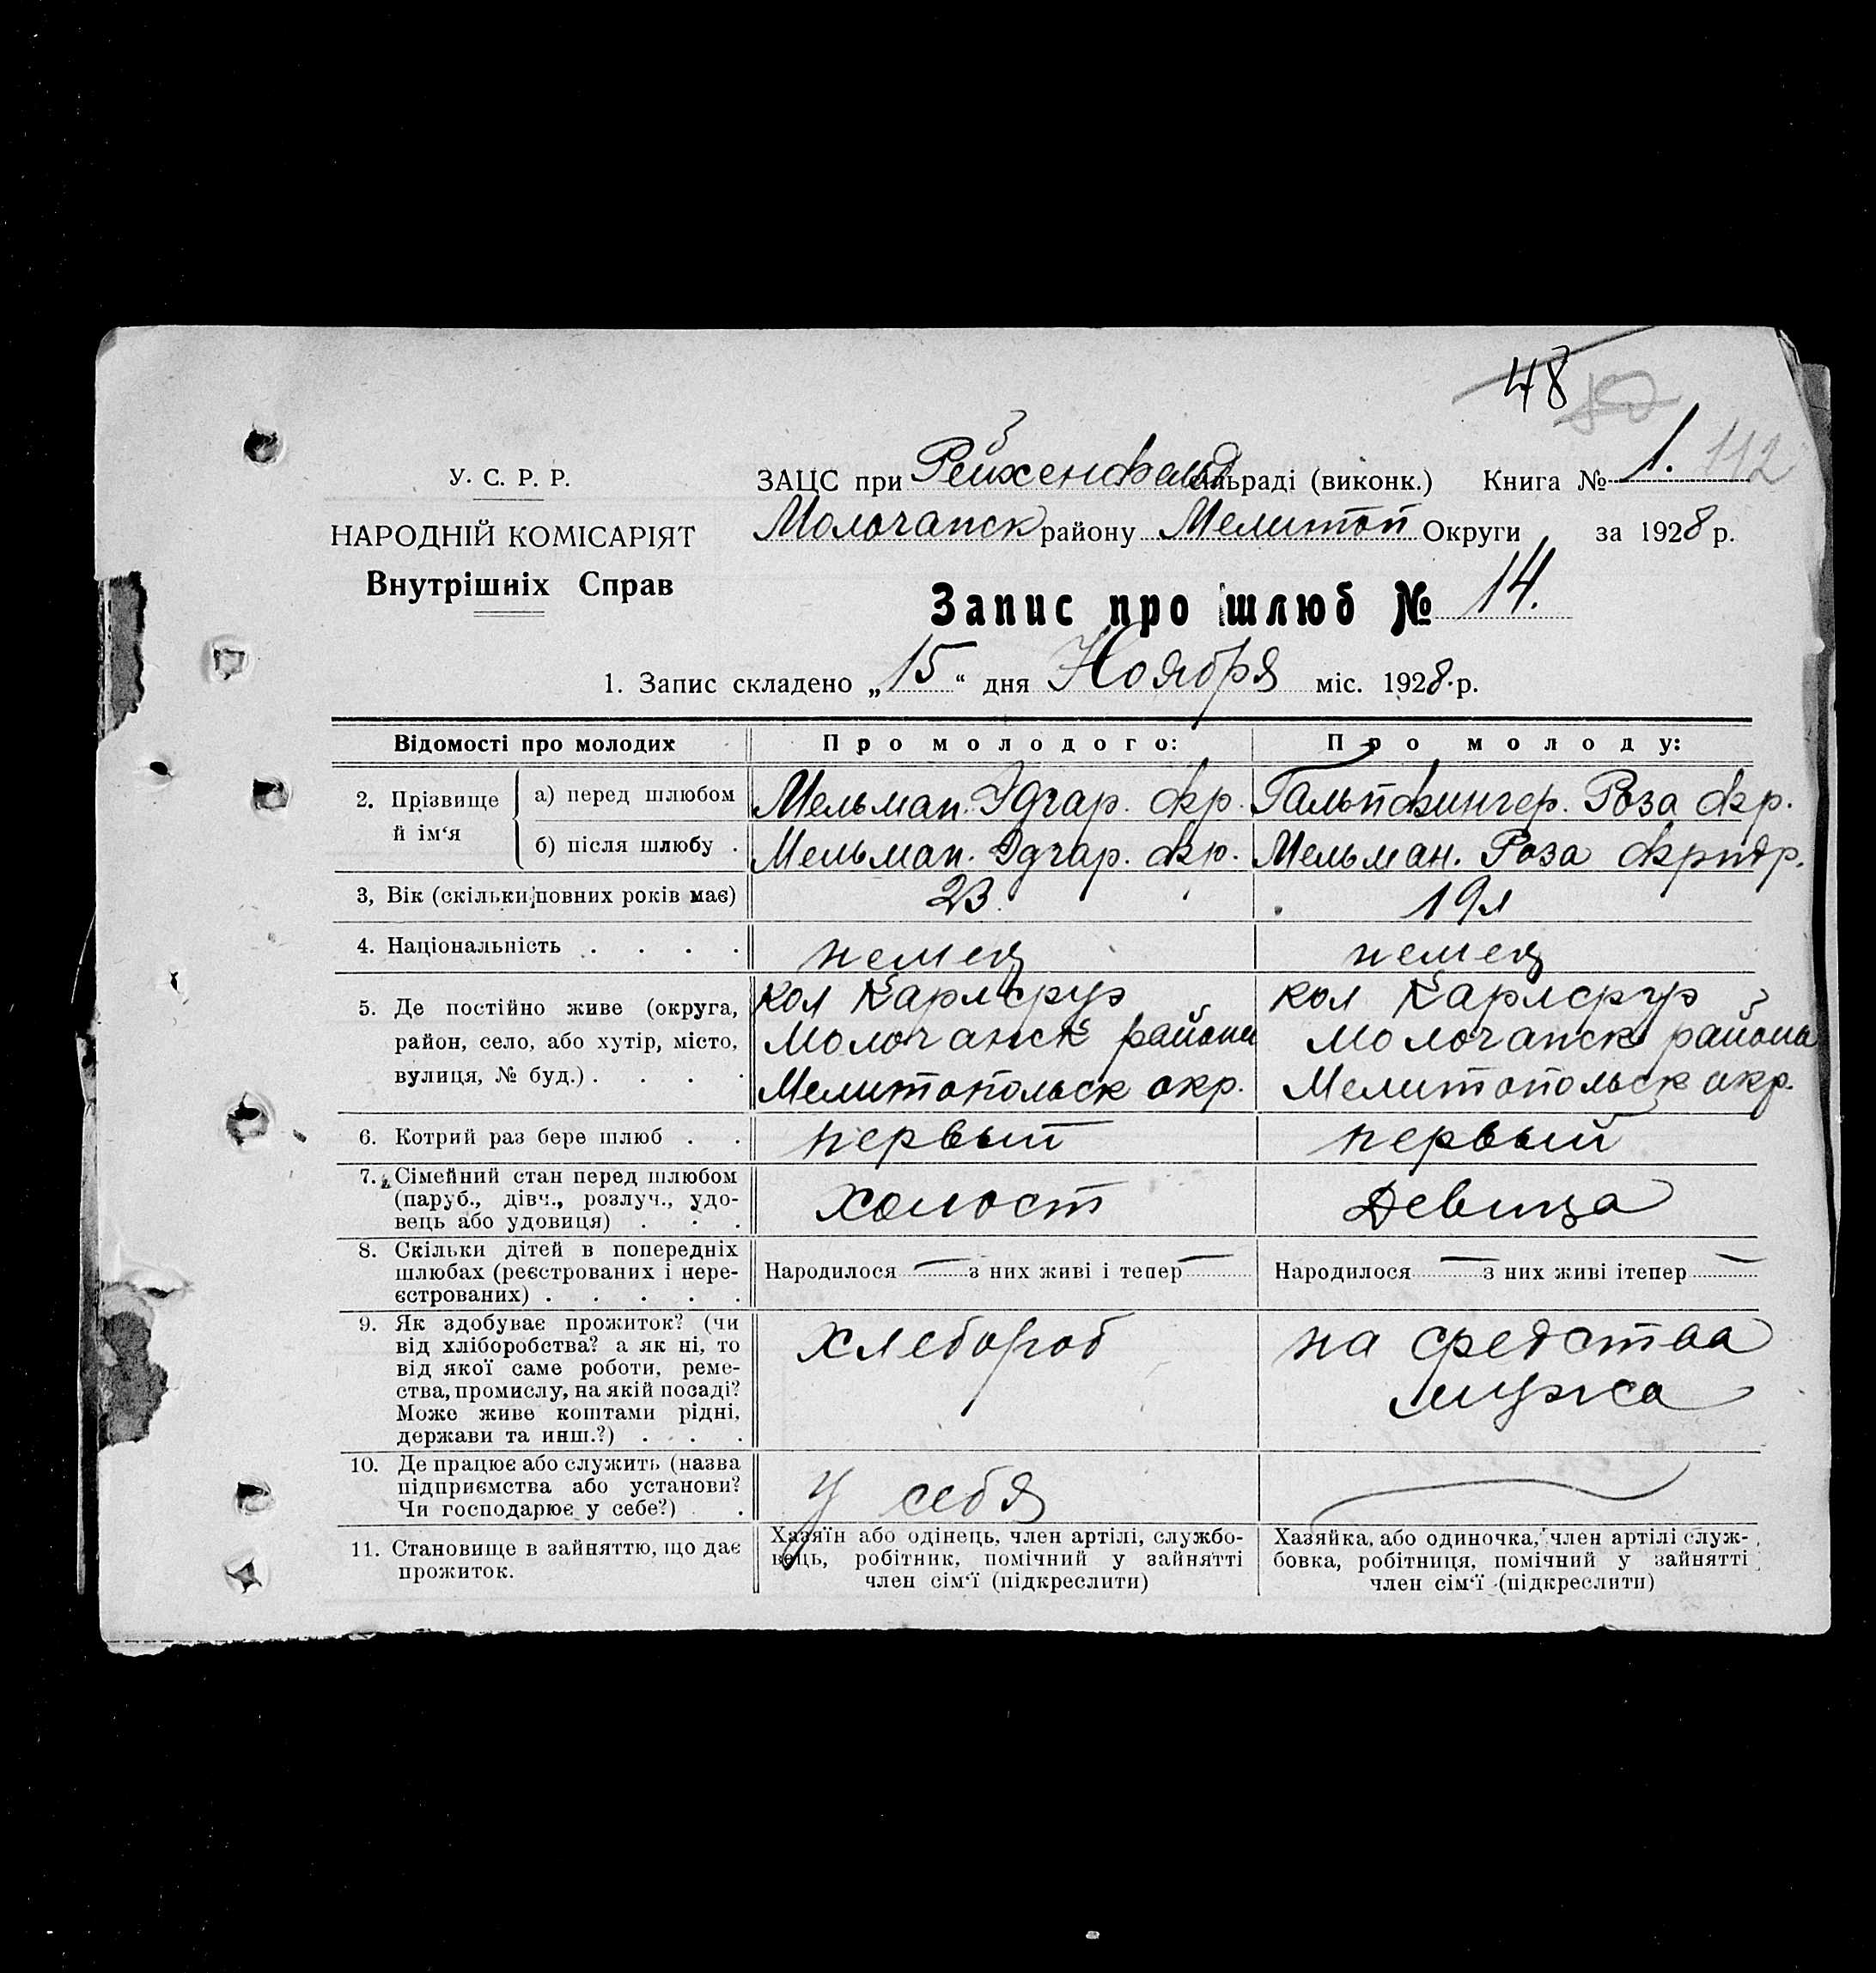 48
112
У. С. Р. Р.
НАРОДНІЙ КОМІСАРІЯТ
Внутрішніх Справ
ЗАЦС при Рейхенфельд сільраді (виконк.) Книга № 1.
Молочанск району Мелитоп Округи за 1928 р.
Запис про шлюб № 14.
1. Запис складено „15“ дня Ноября міс. 1928 р.
Відомості про молодих
Про молодого:
Про молоду:
2. Прізвище й ім‘я
а) перед шлюбом
Мельман. Эдгар. Фр.
Гальпфингер. Роза Фр.
б) після шлюбу .
Мельман. Эдгар. Фр.
Мельман. Роза Фридр.
3, Вік (скільки повних років має)
23
19 л
4. Національність . . . .
немец
немец
5. Де постійно живе (округа,
район, село, або хутір, місто,
вулиця, № буд.) . . . .
кол Карлсруэ
Молочанск района
Мелитопольск окр.
кол Карлсруэ
Молочанск района
Мелитопольск окр.
6. Котрий раз бере шлюб . .
первый
первый
7. Сімейний стан перед шлюбом
(паруб., дівч., розлуч., удо-
вець або удовиця) . . .
холост
Девица
8. Скільки дітей в попередніх
шлюбах (реєстрованих і нере-
єстрованих) . . . . .
Народилося — з них живі і тепер —
Народилося — з них живі ітепер —
9. Як здобуває прожиток? (чи
від хліборобства? а як ні, то
від якої саме роботи, реме-
ства, промислу, на якій посаді?
Може живе коштами рідні,
держави та инш.?) . . .
хлебороб
на средства
мужа
10. Де працює або служить (назва
підприємства або установи?
Чи господарює у себе?) .
у себя
11. Становище в зайняттю, що дає
прожиток.
Хазяїн або одінець, член артілі, службо-
вець, робітник, помічний у зайнятті
член сім‘ї (підкреслити)
Хазяйка, або одиночка, член артілі служ-
бовка, робітниця, помічний у зайнятті
член сім‘ї (підкреслити)